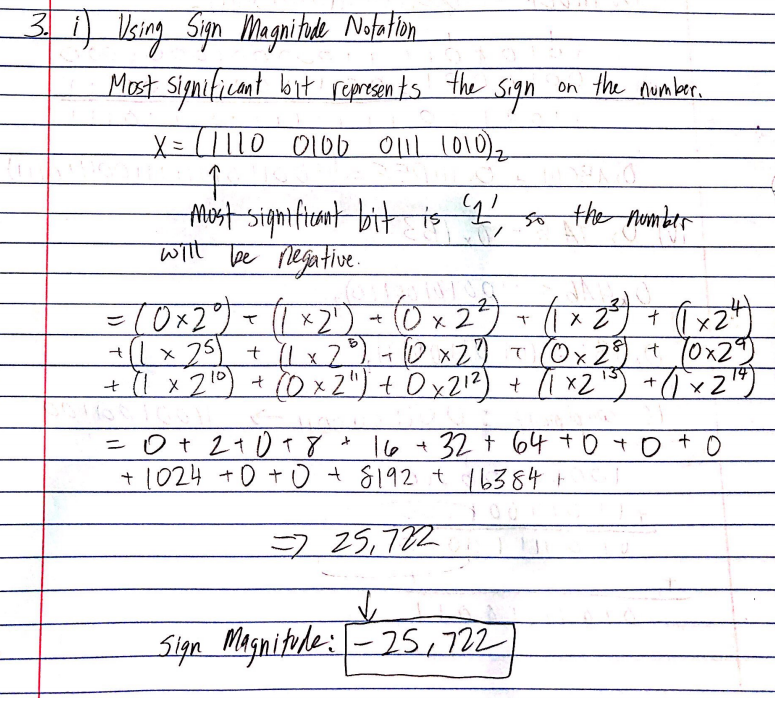 3. i) Using Sign Magnitude Notation
Most significant bit represents the sign on the number.
X = (1110 0100 0111 1010)₂
↑
Most significant bit is '1', so the number
will be negative.
= (0×2⁰) + (1×2¹) + (0×2²) + (1×2³) + (1×2⁴)
+ (1×2⁵) + (1×2⁶) + (0×2⁷) + (0×2⁸) + (0×2⁹)
+ (1×2¹⁰) + (0×2¹¹) + 0×2¹²) + (1×2¹³) + (1×2¹⁴)
= 0 + 2 + 0 + 8 + 16 + 32 + 64 + 0 + 0 + 0
+ 1024 + 0 + 0 + 8192 + 16384 +
⇒ 25,722
↓
Sign Magnitude: -25,722